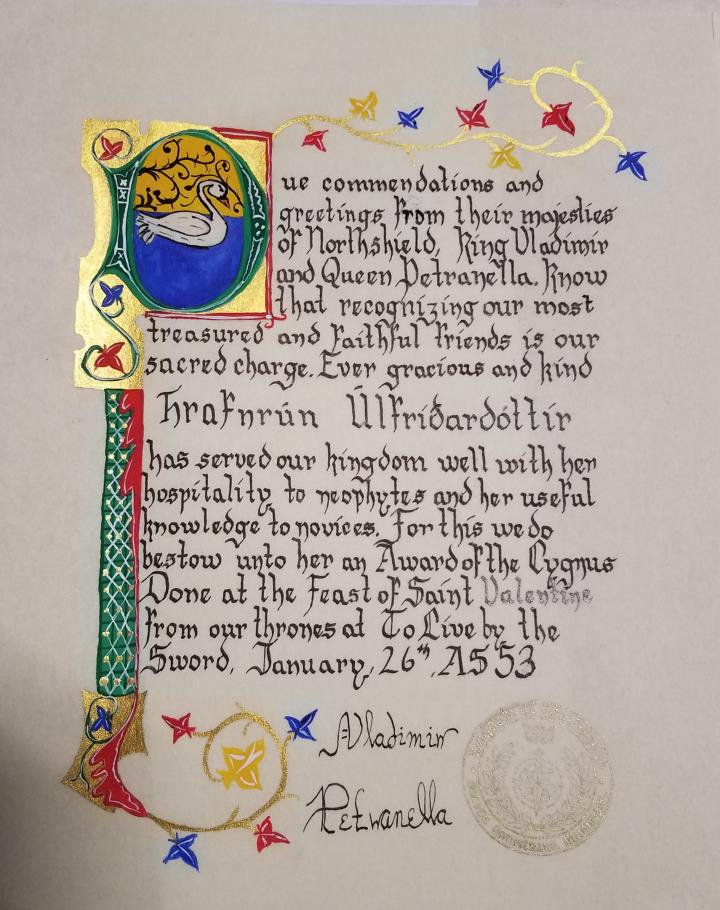 Due commendations and
greetings from their majesties
of Northshield, King Vladimir
and Queen Petranella. Know
that recognizing our most
treasured and faithful friends is our
sacred charge. Ever gracious and kind
Hrafnrún Úlfriðardóttir
has served our kingdom well with her
hospitality to neophytes and her useful
knowledge to novices. For this we do
bestow unto her an Award of the Cygnus
Done at the Feast of Saint Valentine
from our thrones at To Live by the
Sword, January, 26th, AS 53
Vladimir
Petranella